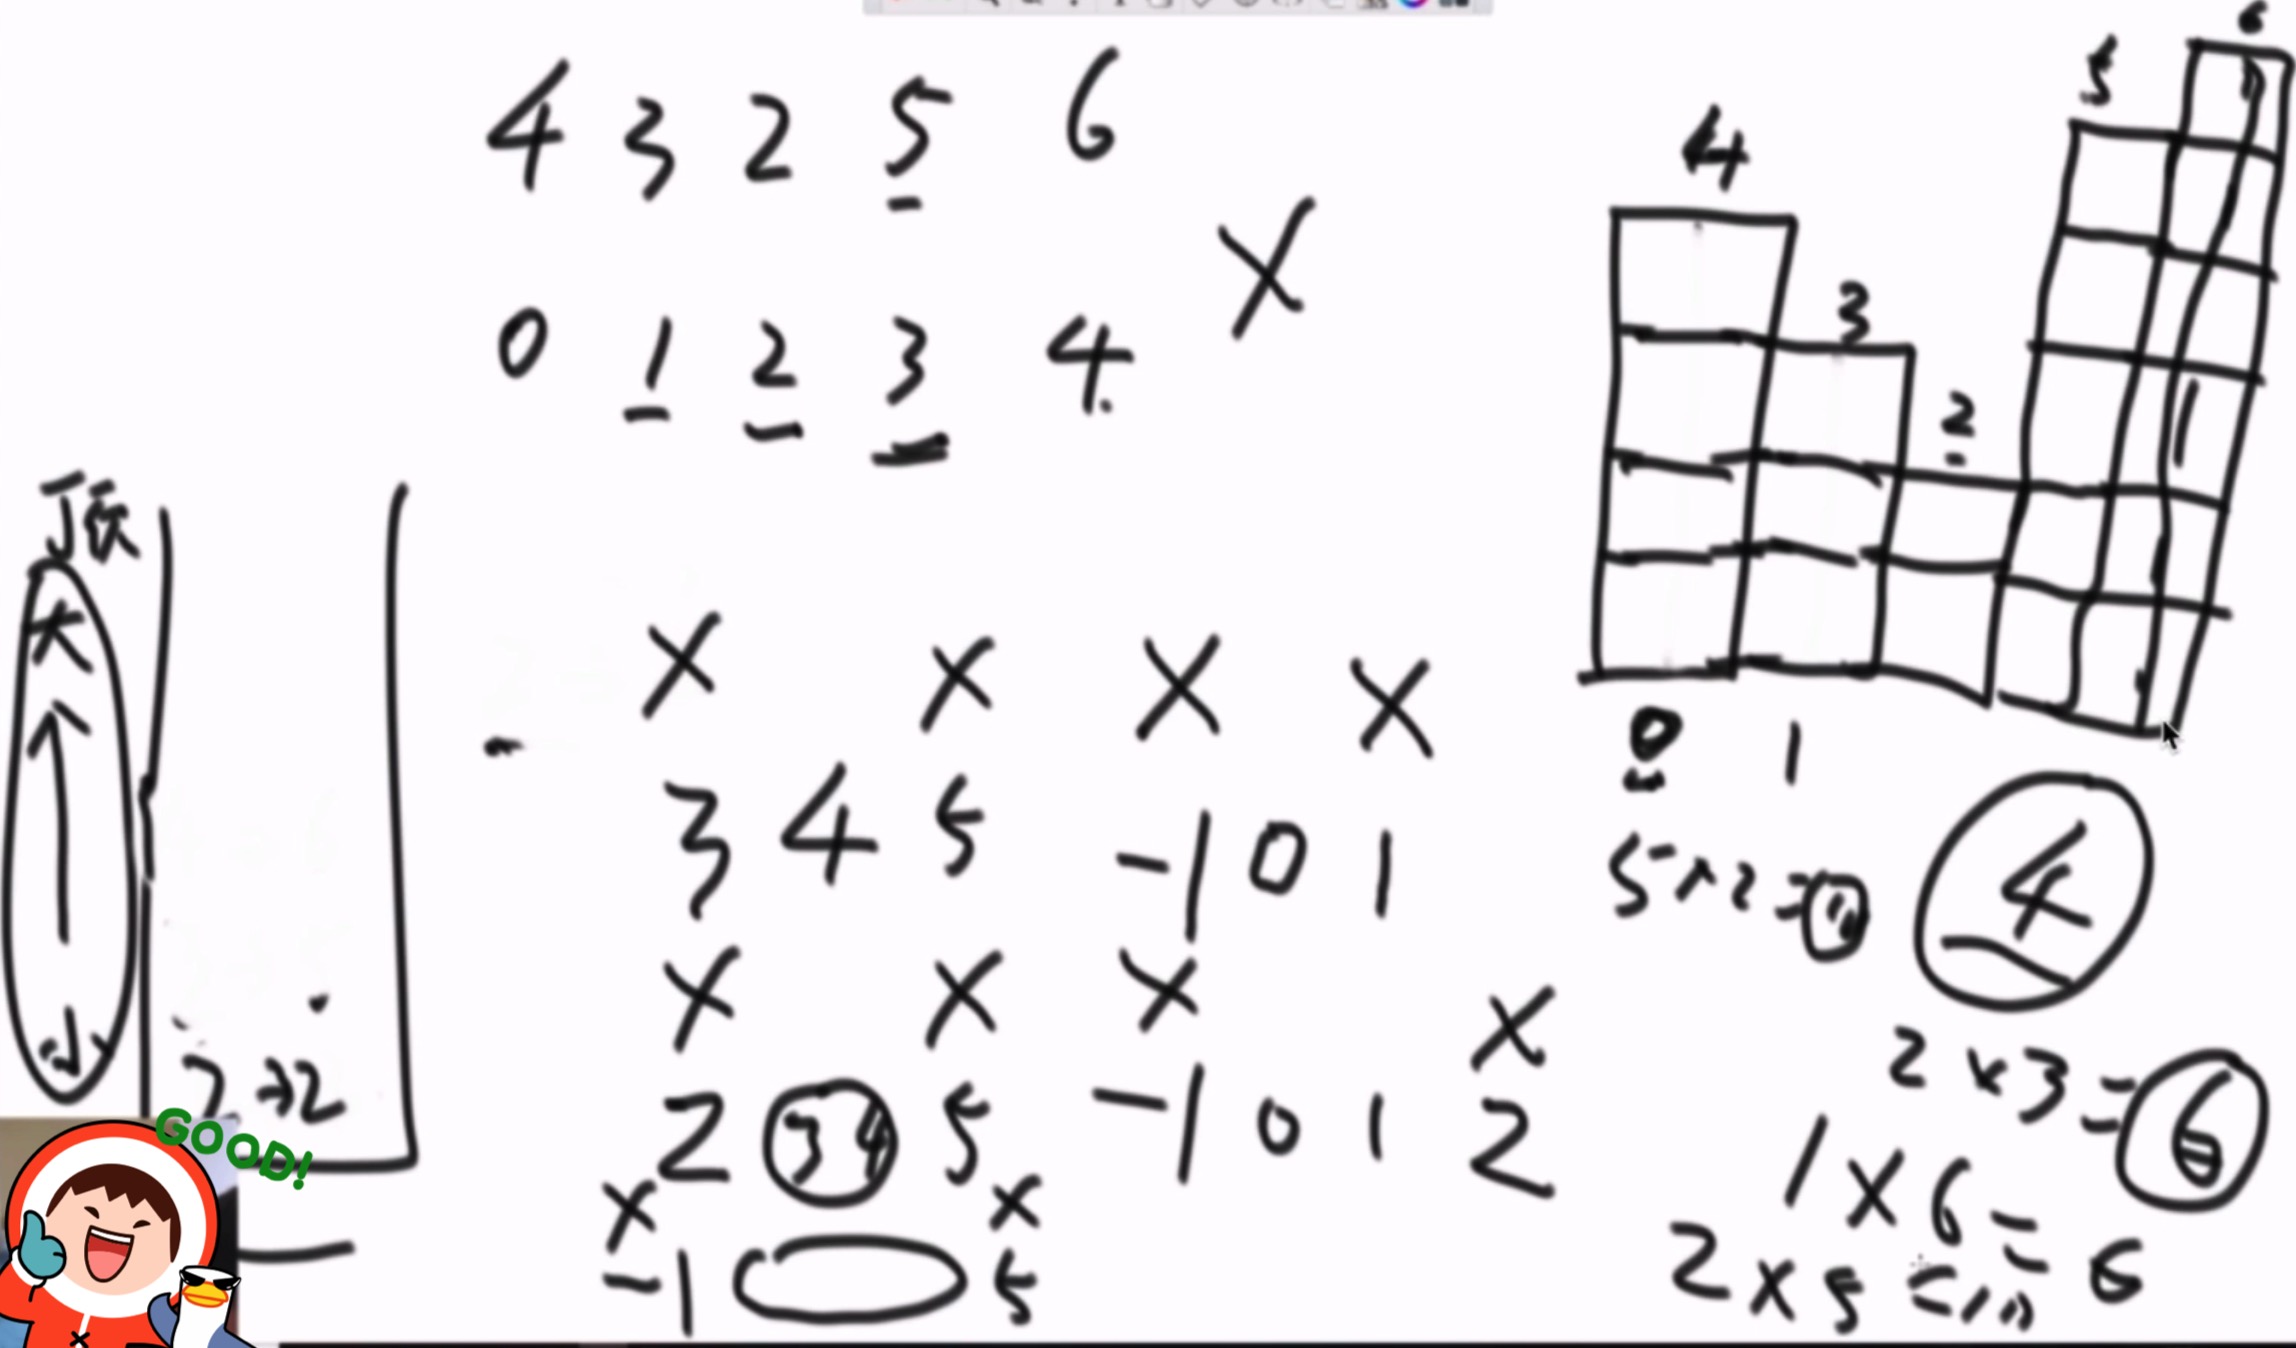 4 3 2 5 6
0 1 2 3 4
X
顶
大
小
2→2
X X X X
3 4 5 -1 0 1
X X X X
2 3 4 5 -1 0 1 2
X X
-1 5
4
3
2
5
6
0 1
5×2=10
4
2×3=6
1×6=6
2×5=10
GOOD!